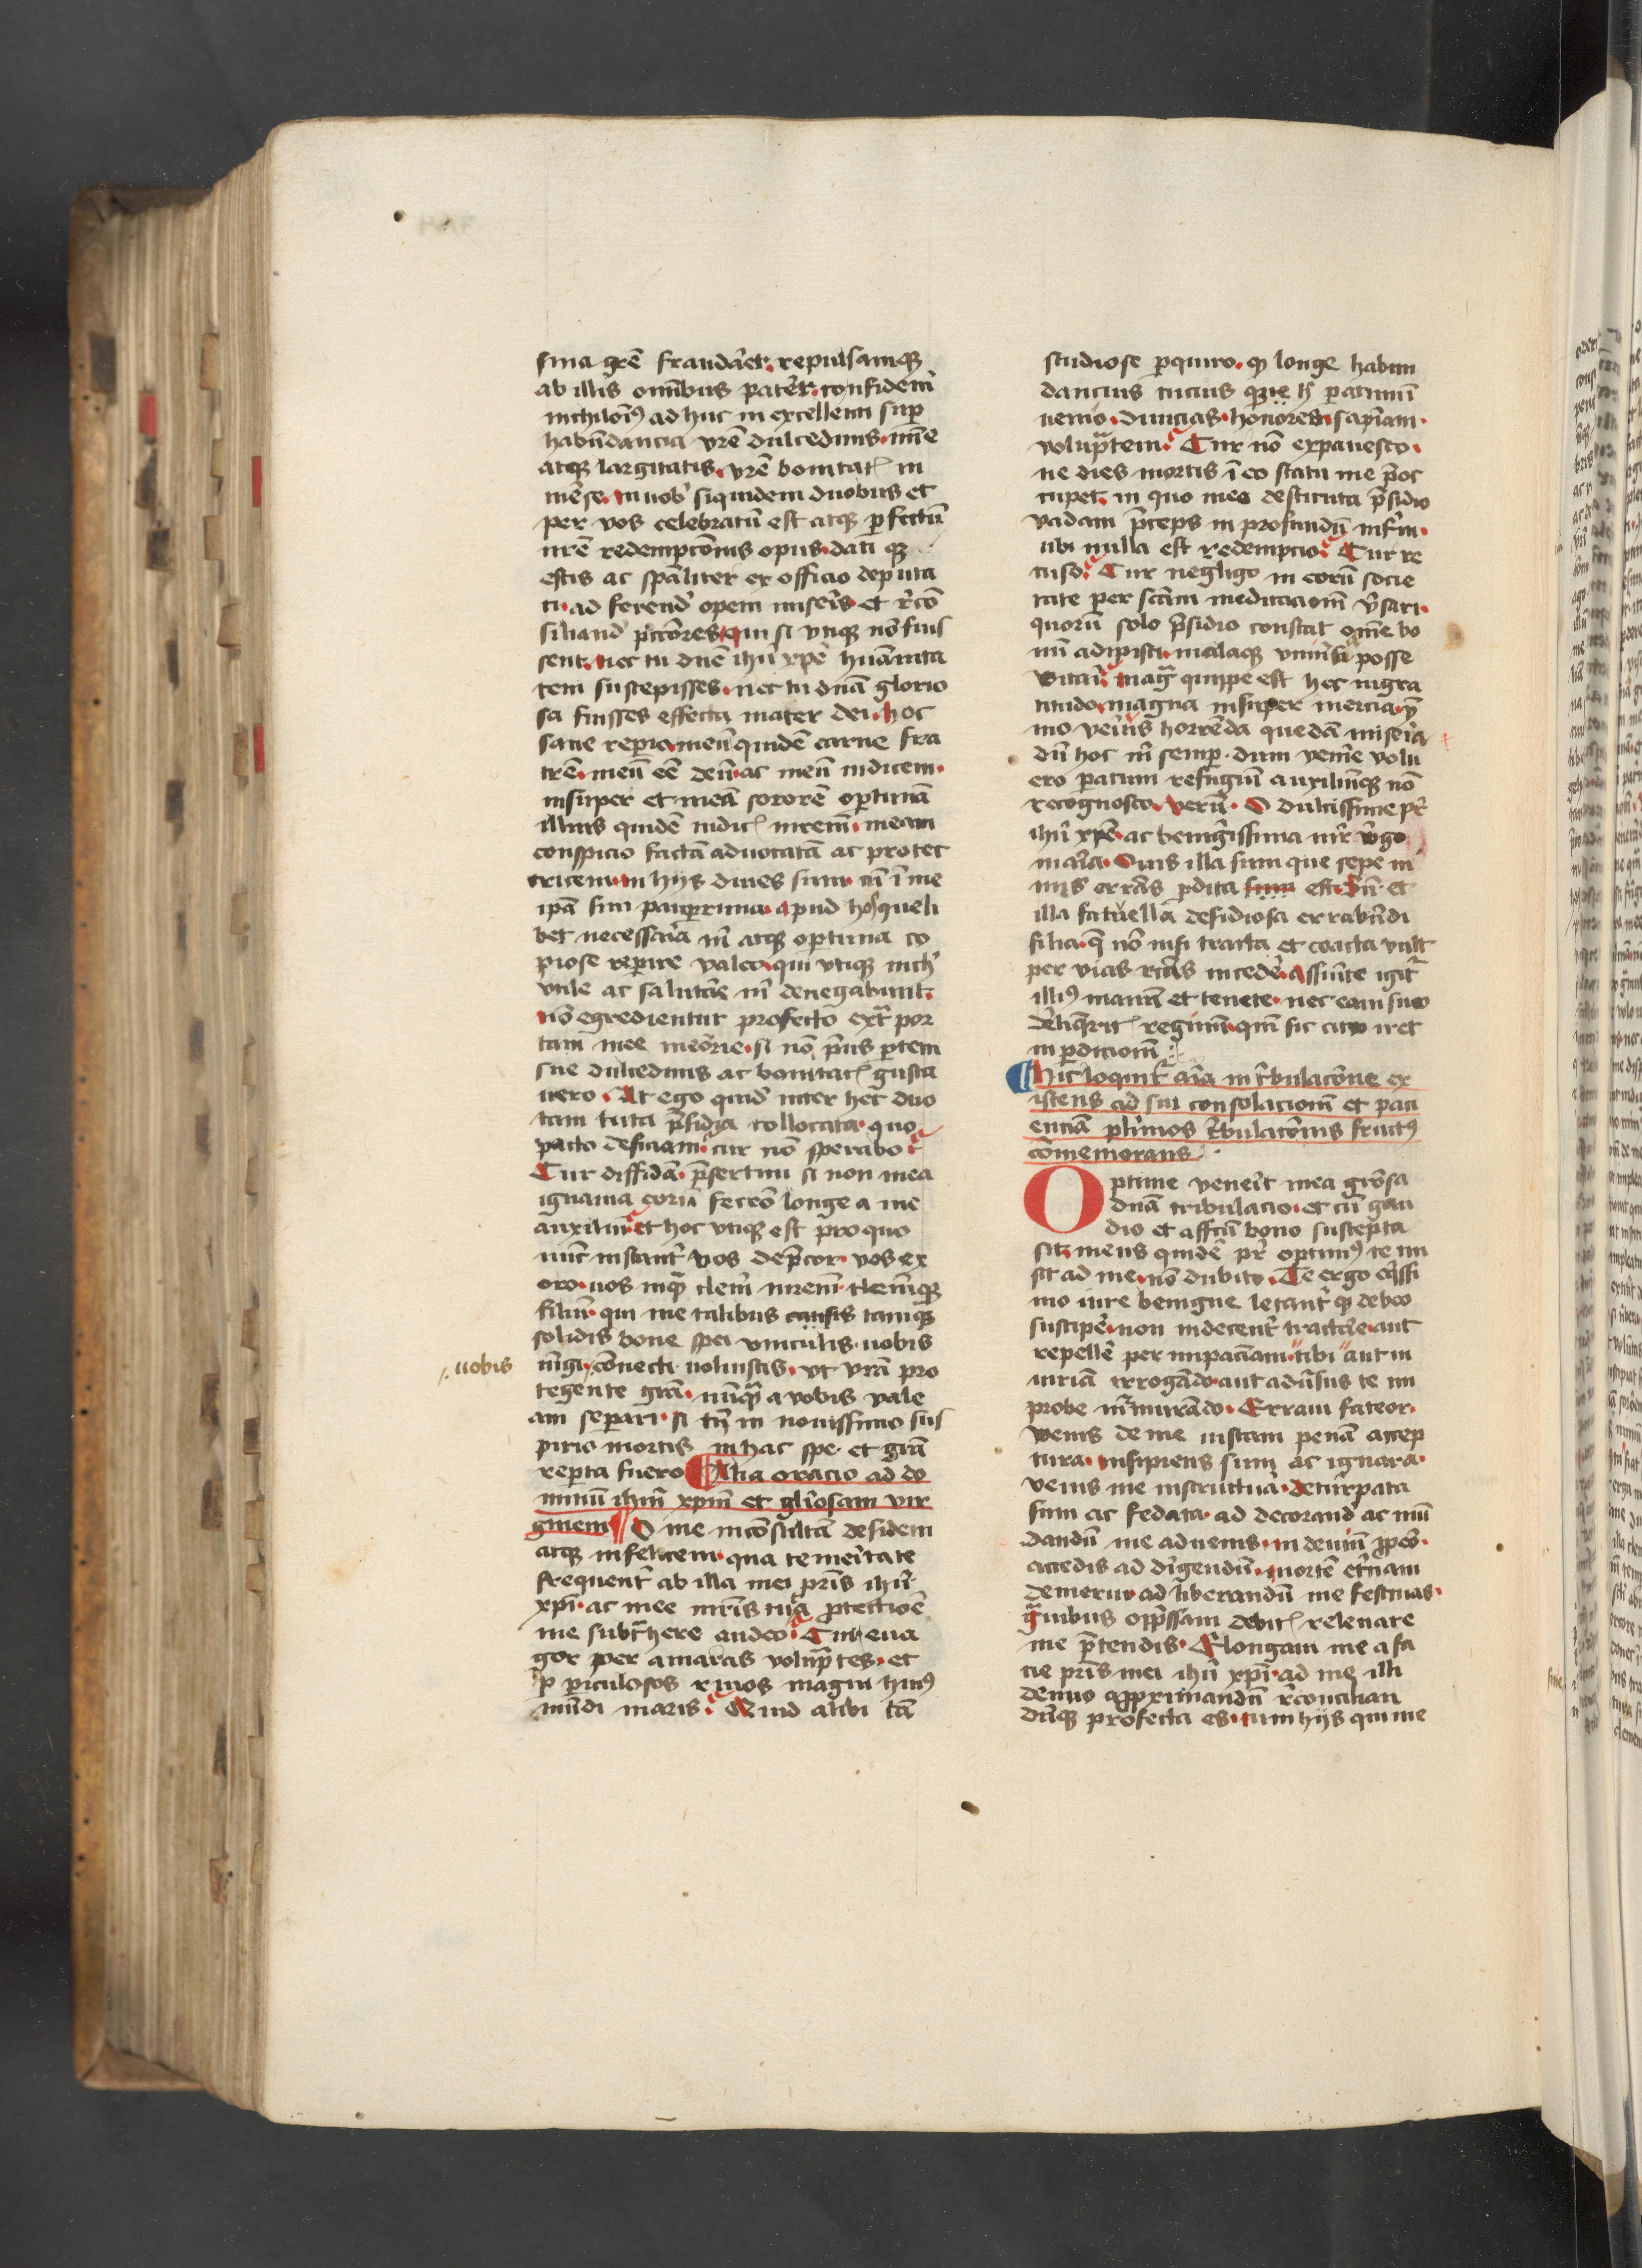 sma grē fraudāret. repulsamqꝫ
ab illis omībus pater. confidenī
nichilomīꝰ ad huc in excellenti sup
habūdancia vrē dulcedinis. imē
atqꝫ largitatis. vrē bonitatꝭ in
mēse. in nob siquidem duobus et
per vos celebratū est atqꝫ perfectū
nrē redempcōnis opus. dati qꝫ
estis ac spāliter ex officio deputa
ti. ad ferend opem miseris. et rcō
siliand pccōres. qui si vtiqꝫ nō fuis
sent. nec tu dnē ihū xpē huāmita
tem suscepisses. nec tu dnā glorio
sa fuisses effecta mater dei. hoc
sane reperio. meū quidē carne fra
trē. meū eē deū. ac meū iudicem.
insuper et meā sororē optimā
illius quidē iudicꝭ mrem. meam
conspicio factā aduocatā ac protec
tricem. in hijs diues sum. cū ī me
ipā sim pauperrima. apud hos queli
bet necessaria m̄ atqꝫ optima co
piose reperire valeo. qui vtiqꝫ nich
vtile ac salutare m̄ denegabunt.
nō egredientur profecto extr̄ por
tam mee meōrie. si nō prius partem
sue dulcedinis ac bonitatꝭ gusta
uero. At ego quid inter hec duo
tam tuta p̄sidia collocata. quo
pacto deficiam. cur nō sperabo
Cur diffidā. p̄sertim si non mea
ignauia eorū fecero longe a me
auxiliū. et hoc vtiqꝫ est pro quo
nūc instantr̄ vos dep̄cor. vos ex
oro. uos inqͣ clem̄ mrem. clem̄qꝫ
filiū. qui me talibus causis tamqꝫ
solidis bone spei vinculis. uobis
⁒ uobis
īngi. cōnecti voluistis. vt vrā pro
tegente grā. nūqͣ a vobis vale
am separi. si tn̄ in nouissimo sus
pirio mortis in hac spe. et grā
reperta fuero ¶ Alia oracio ad do
minū ihm xpm et gliosam vir
ginem ¶ O me inconsultā desidem
atqꝫ infelicem. qua temeritate
frequentr̄ ab illa mei pr̄is ihū
xpi. ac mee mr̄is tua protectione
me subtͣhere audeo. Cur eua
gor per amaras voluptͣtes. et
p periculosos riuos magni huiꝰ
mūdi maris. Quid alibi tā
studiose perquiro. qꝫ longe habun
dancius tucius que h̄ paratum ī
uenio. diuicias. honores. sapīam.
voluptͣtem. Cur nō expauesco.
ne dies mortis ī eo statu me p̄oc
cupet. in quo mea destituta p̄sidio
vadam p̄ceps in profundū infm̄.
ubi nulla est redempcio. Cur re
cuso. Cur negligo in eorū socie
tate per scām meditacōm v̄sari.
quorū solo p̄sidio constat om̄e bo
nū adipisci. malaqꝫ vniūsa posse
vitari. magͣ quippe est hec ingra
titudo. magna insuper inercia. y
mo verius horrēda quedā miseria
dū hoc m̄ semper. dum venire volu
ero paratum refugiū auxiliūqꝫ nō
recognosco. Verū. O dulcissime pr̄
ihū xpē. ac benignissima mr̄ virgo
maria. Ouis illa sum que sepe in
mis errās perdita sum est. Sū et
illa fatuella desidiosa errabūdi
filia. q̄ nō nisi tracta et coacta vult
per vias rectās incedē. Assumite igit̄
illiꝰ manū et tenete. nec eam suo
dēlinqueritꝭ regimī. qm̄ sic cito iret
in perdicionē
¶ Hic loquit̄ aīa in tr̄bulacōne ex
istens ad sui consolacionē et paci
enciā plurimos tr̄bulacōnis fructꝰ
cōmemorans.
Optime veneit mea grōsa
dnā tribulacio. et cū gau
dio et affcū bono suscepta
sit. meus quidē pr̄ optimꝰ te mi
sit ad me. nō dubito. Te ergo c̄issi
mo iure benigne letantr̄ qꝫ debeo
suscipe. non indecentr̄ tractare. aut
repellē per impaciam. tibi aut in
iuriā irrogādo. aut adūsus te im
probe mūrmurādo. Erraui fateor.
venis de me iustam penā accep
tura. insipiens sum ac ignara.
venis me instructura. deturpata
sum ac fedata. ad decorand ac mū
dandū me aduenis. in deuium p̄peo.
accedis ad dirigendū. mortē et̄nam
demerui. ad liberandū me festinas.
gͣuibus opp̄ssam debitꝭ releuare
me p̄tendis. Elongaui me a fa
cie pr̄is mei ihū xpi. ad me illi
denuo approximandū reconcilian
dūqꝫ profecta es. cum hijs qui me